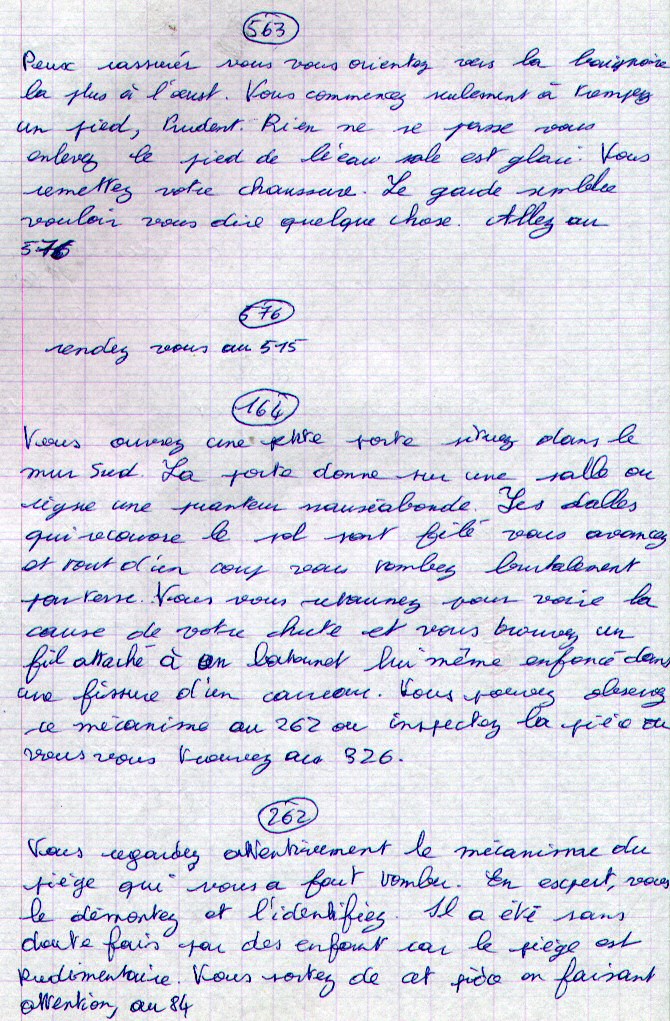 563
Peux rassurér vous vous orientez vers la baignoire
la plus à l'ouest. Vous commencez seulement à trempez
un pied, Prudent. Rien ne se passe vous
enlevez le pied de l'eau sale est glacé. Vous
remettez votre chaussure. Le garde semblee
vouloir vous dire quelque chose. Allez au
576
576
rendez vous au 515
164
Vous ouvrez une ptite porte situez dans le
mur Sud. La porte donne sur une salle ou
règne une puanteur nauséabonde. Les dalles
qui recouvre le sol sont fêlé vous avancez
et tout d'un coup vous tombez brutalement
par terre. Vous vous retournez pour voire la
cause de votre chute et vous trouvez un
fil attaché à un batonnet lui même enfoncé dans
une fissure d'un carreau. Vous pouvez observez
ce mécanisme au 262 ou inspectez la pièce ou
vous vous trouvez au 326.
262
Vous regardez attentivement le mécanisme du
piège qui vous a fait tomber. En expert, vous
le démontez et l'identifiez. Il a été sans
doute fais par des enfant car le piège est
rudimentaire. Vous sortez de cet pièce en faisant
attention, au 84